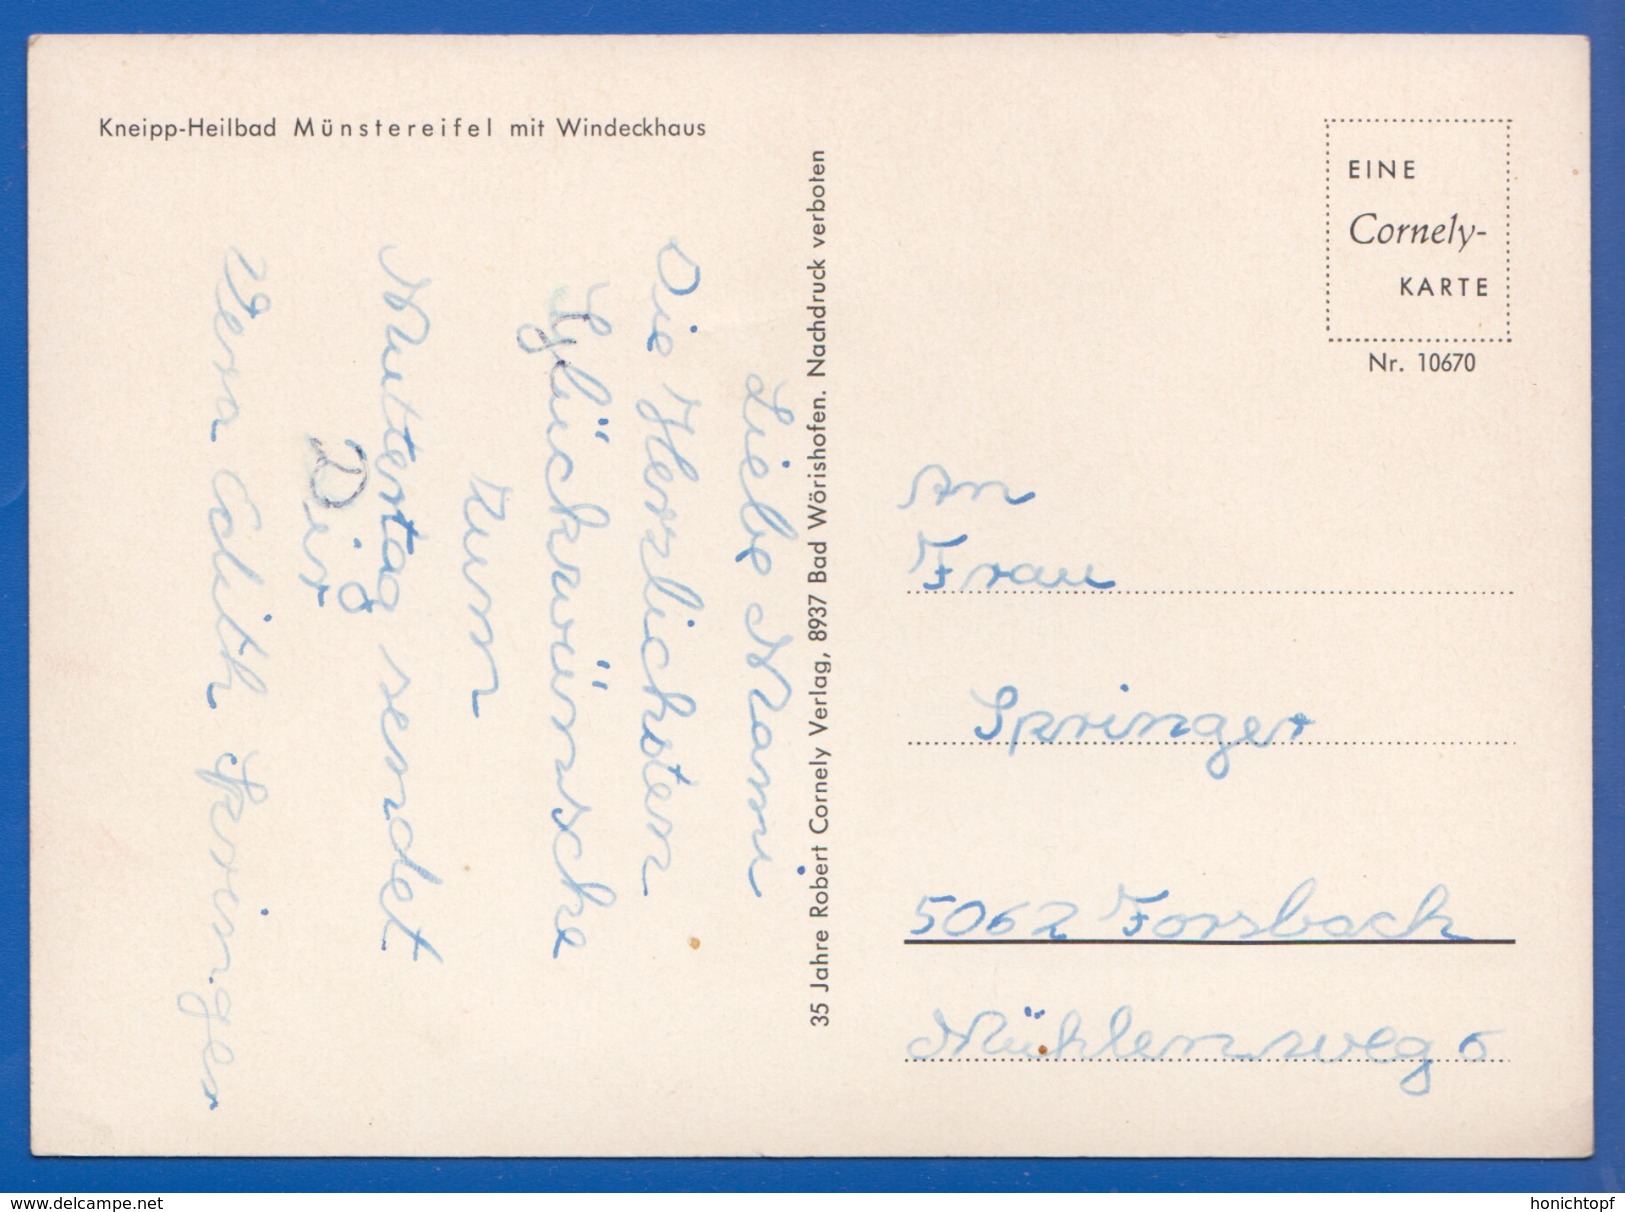 Kneipp-Heilbad Münstereifel mit Windeckhaus
Liebe Mami
Die Herzlichsten
Glückwünsche
zum
Muttertag sendet
Dir
Vera Edith Springer
35 Jahre Robert Cornely Verlag, 8937 Bad Wörishofen. Nachdruck verboten
EINE
Cornely-
KARTE
Nr. 10670
An
Frau
Springer
5062 Forsbach
Mühlenweg 6
www.delcampe.net
honichtopf